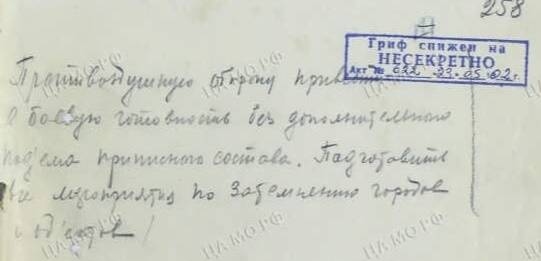 258
Гриф снижен на
НЕСЕКРЕТНО
Акт № 622 23.05.02г.
Противовоздушную оборону привести
в боевую готовность без дополнительного
подъема приписного состава. Подготовить
все мероприятия по затемнению городов
и об'ектов!
ЦАМО РФ